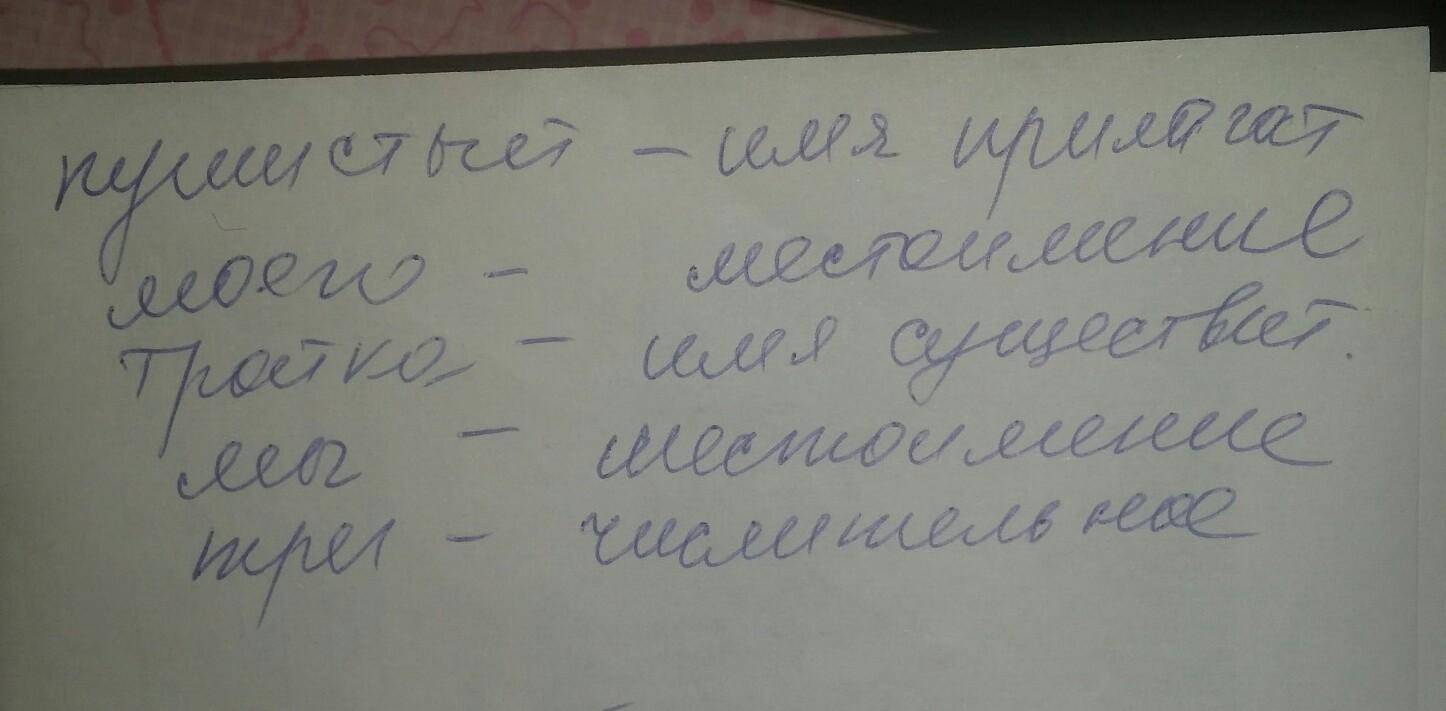 пушистый - имя прилагат
моего - местоимение
тройка - имя существит.
мы - местоимение
три - числительное